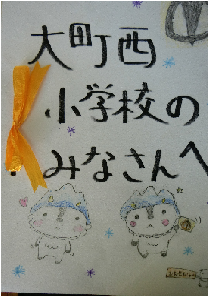 大町西
小学校の
みなさんへ